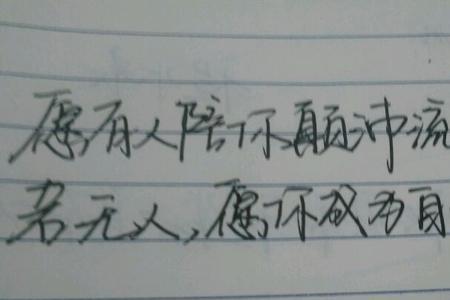 愿有人陪你颠沛流
若无人,愿你成为自